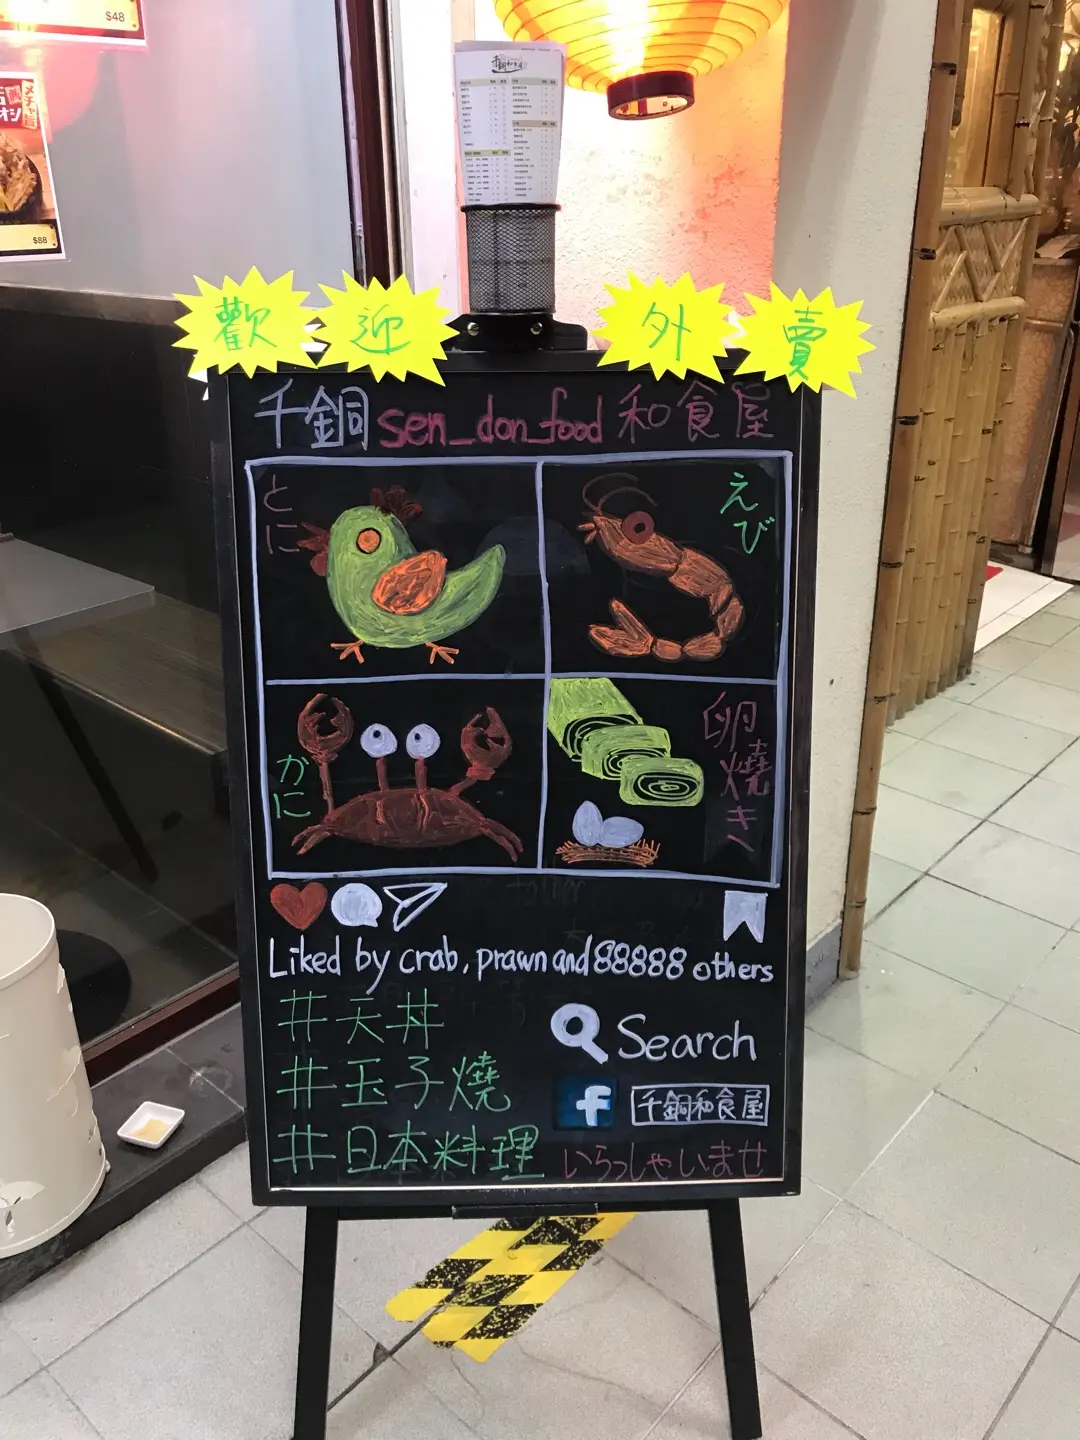 $48
メチャ
オシ
$88
歡迎 外賣
千銅 sen_don_food 和食屋
とに
えび
かに
卵燒き
Liked by crab, prawn and 88888 others
#天丼
#玉子燒
#日本料理
Search
f 千銅和食屋
いらっしゃいませ